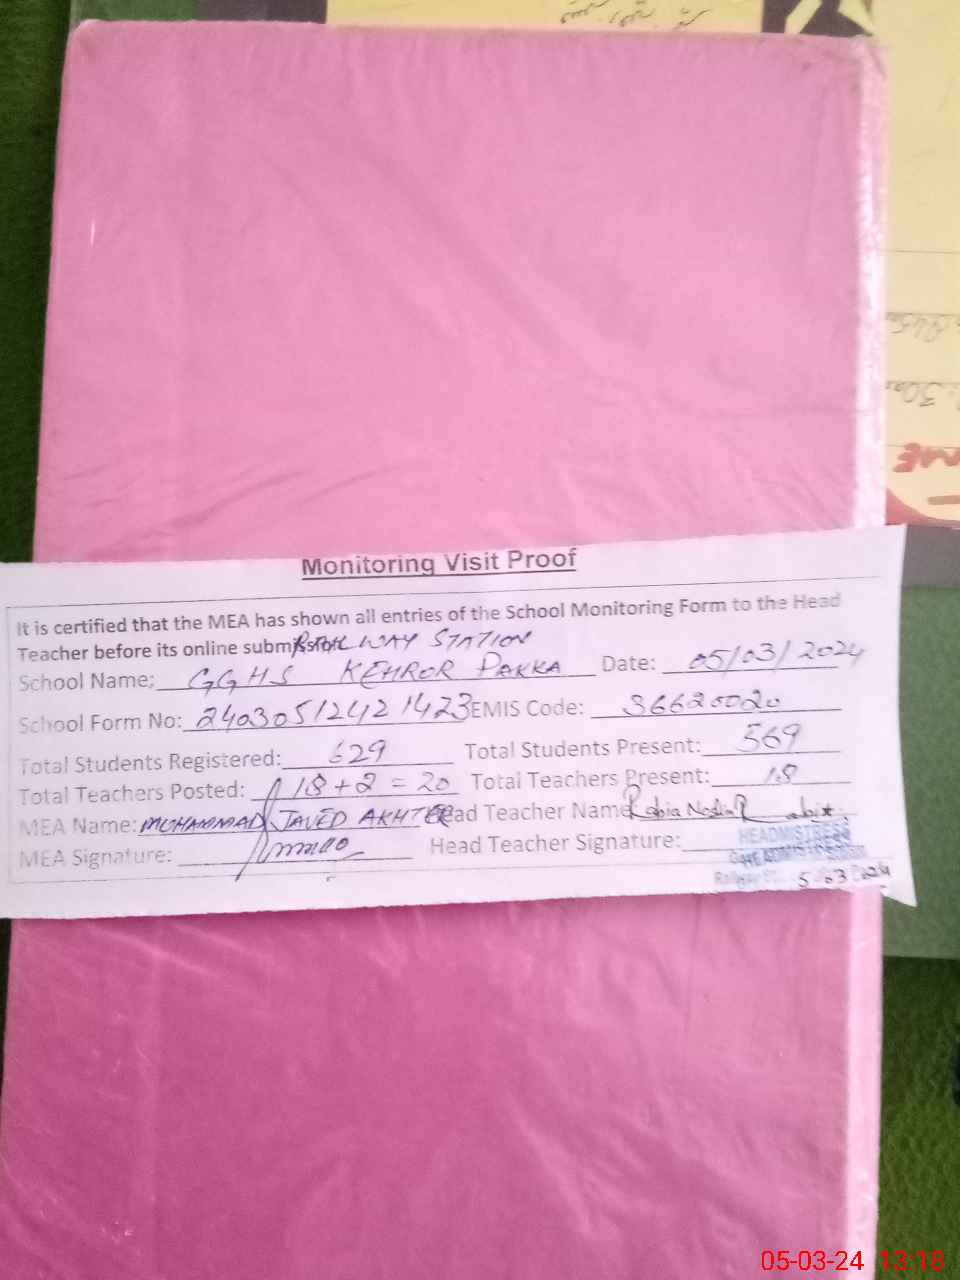 Monitoring Visit Proof
It is certified that the MEA has shown all entries of the School Monitoring Form to the Head
Teacher before its online submission
WAY STATION
School Name: GGHS KEHROR PAKKA Date: 05/03/2024
School Form No: 24030512421423 EMIS Code: 36620020
Total Students Registered: 629 Total Students Present: 569
Total Teachers Posted: 18+2=20 Total Teachers Present: 18
MEA Name: MUHAMMAD JAVED AKHTER Head Teacher Name: Rabia
MEA Signature: Head Teacher Signature:
HEADMISTRESS
5-03-2024
30
ME
05-03-24 13:18